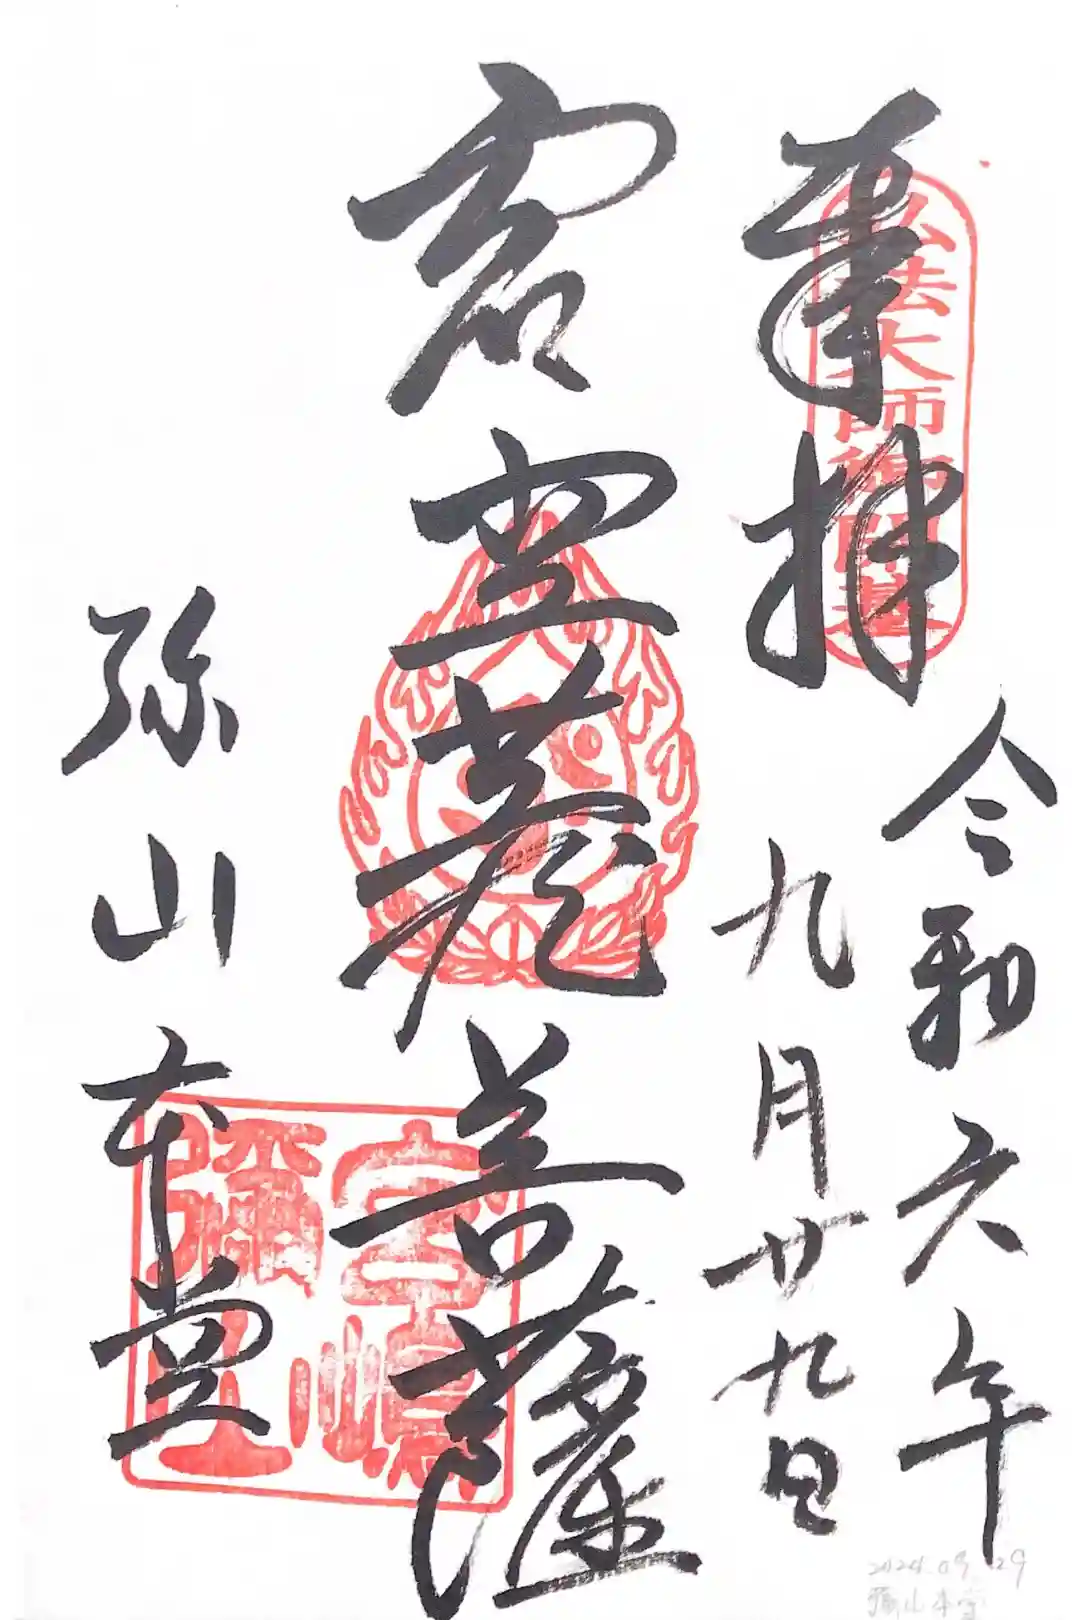 奉拝
弘法大師御開基
令和六年
九月廿九日
虚空蔵菩薩
弥山本堂
宮島
彌山
2024.09.29
彌山本堂